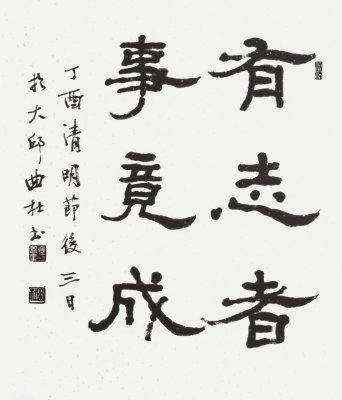 有志者
事竟成
丁酉清明節後三日
於大邱曲杜书